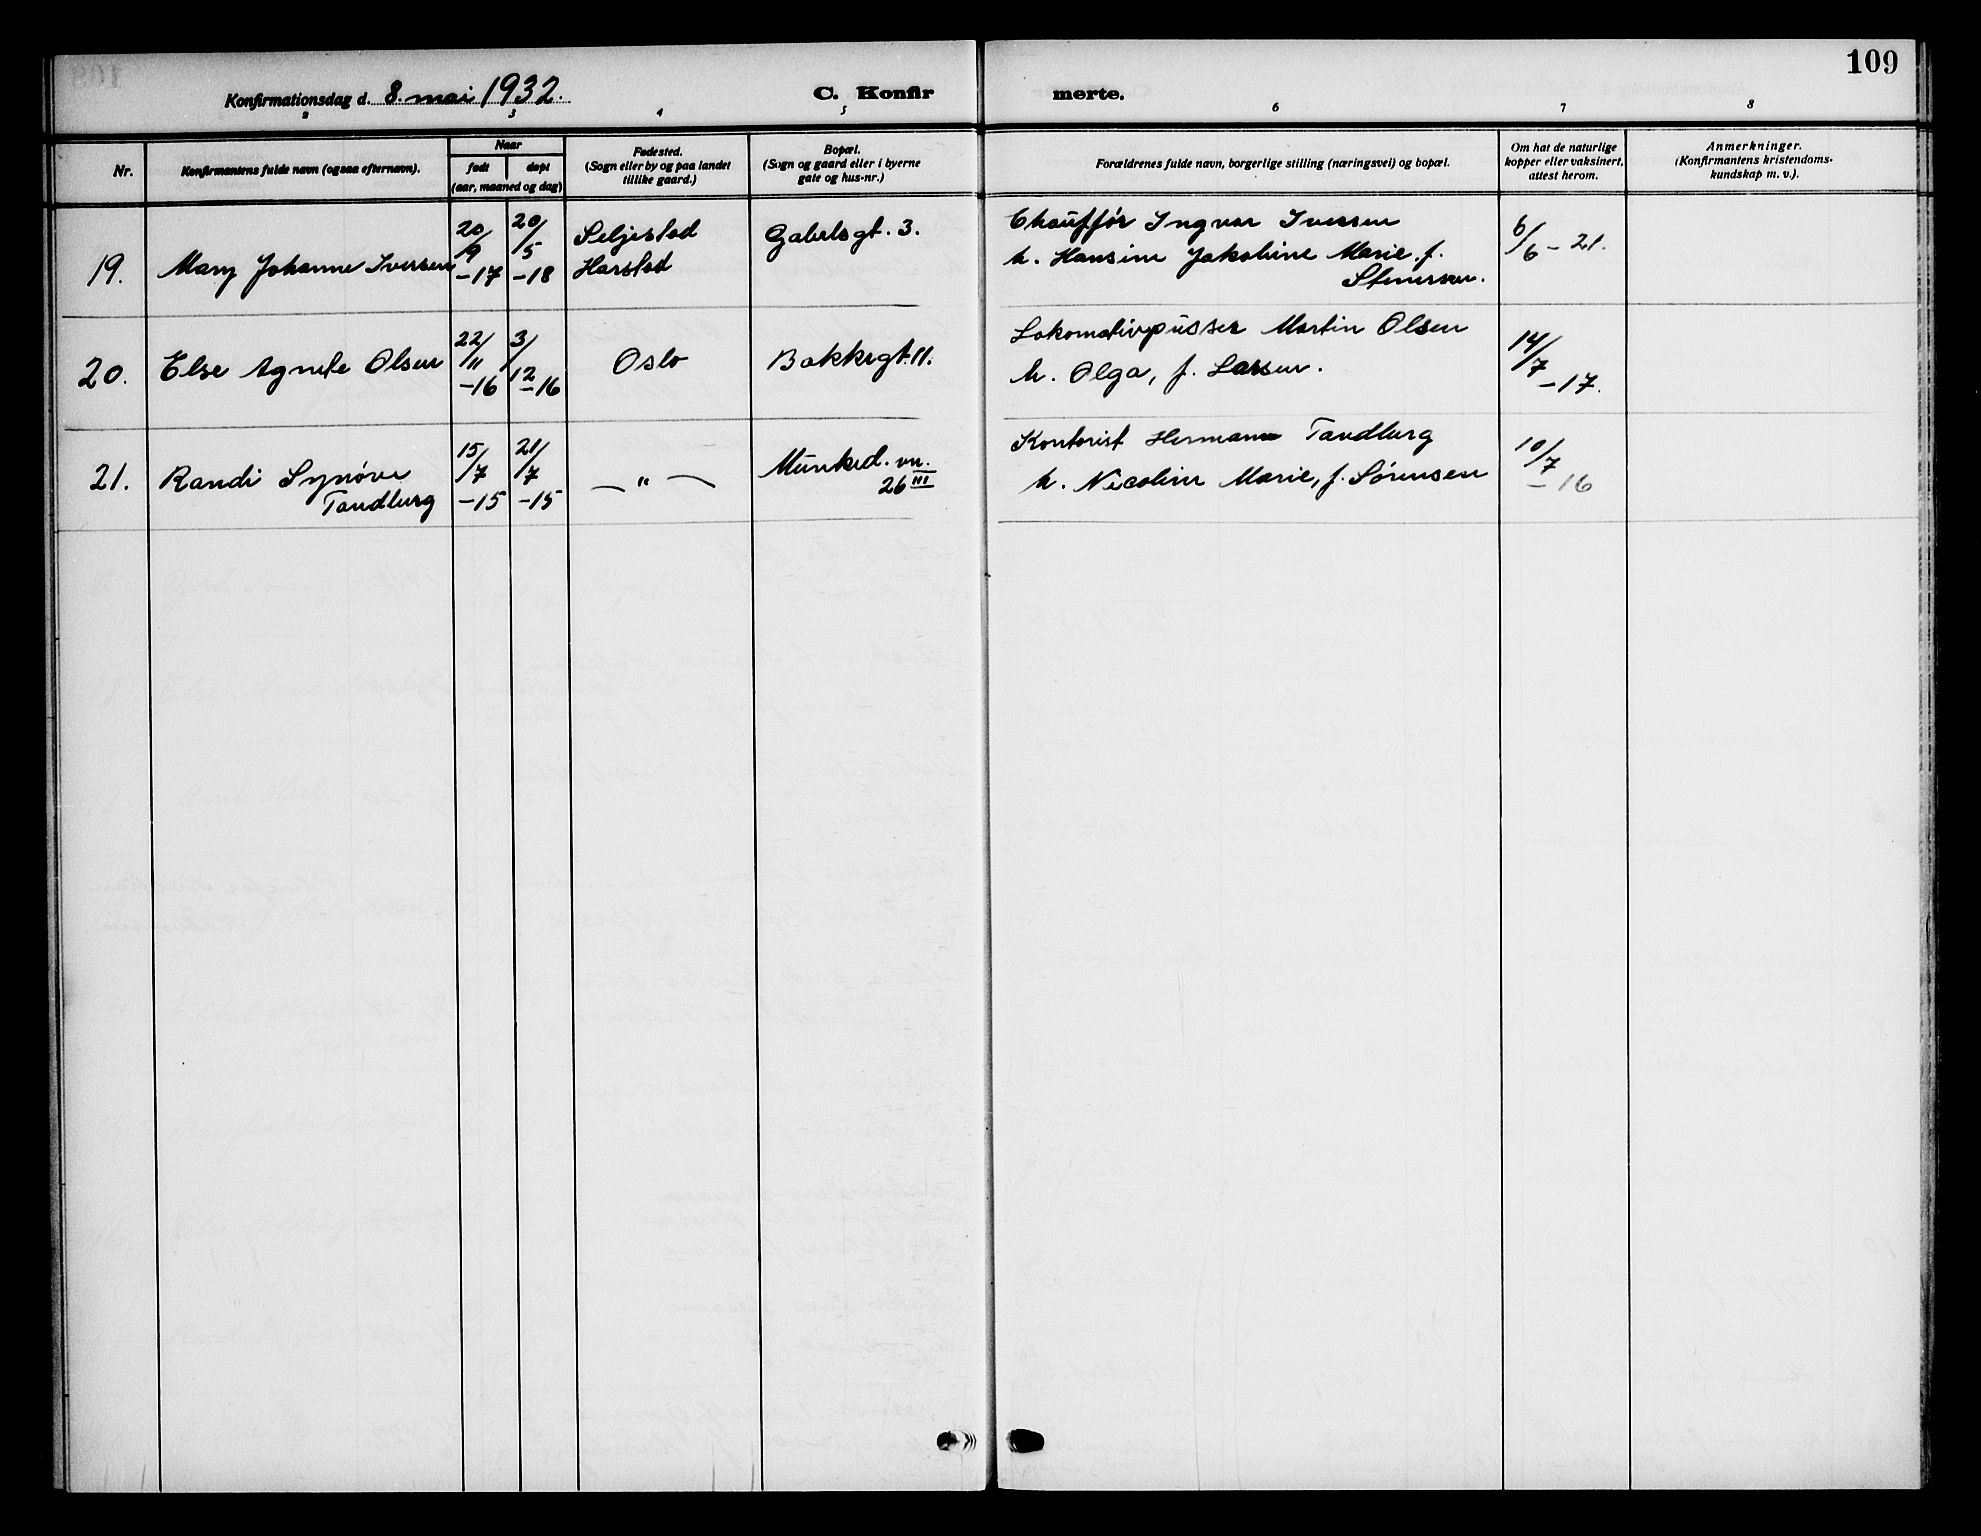 109
Konfirmationsdag d. 8. mai 1932. C. Konfir merte.
2 3 4 5 6 7 8
Nr.
Konfirmantens fulde navn (ogsaa efternavn).
Naar
født døpt
(aar, maaned og dag)
Fødested.
(Sogn eller by og paa landet
tillike gaard.)
Bopæl.
(Sogn og gaard eller i byerne
gate og hus-nr.)
Forældrenes fulde navn, borgerlige stilling (næringsvei) og bopæl.
Om hat de naturlige
kopper eller vaksinert,
attest herom.
Anmerkninger.
(Konfirmantens kristendoms-
kundskap m. v.).
19. Mary Johanne Iversen
20/9 -17
20/5 -18
Seljestad
Harstad
Gabelsgt. 3.
Chauffør Ingvar Iversen
h. Hansine Jakobine Marie f.
Stenersen.
6/6 - 21.
20. Else Agnete Olsen
22/11 -16
3/12 -16
Oslo
Bakkegt. 11.
Lokomotivpusser Martin Olsen
h. Olga, f. Larsen.
14/7 -17.
21. Randi Synøve
Tandberg
15/7 -15
21/7 -15
— " —
Munked. vn.
26 III
Kontorist Hermann Tandberg
h. Nicoline Marie, f. Sørensen
10/7 - 16